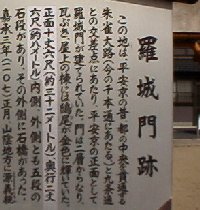 羅城門跡
この地は、平安京の昔、都の中央を貫通する
朱雀大路(今の千本通にあたる。)と九条通
との交差点にあたり、平安京の正面として
羅城門が建てられていた。門は二層からなり、
瓦ぶき、屋上の棟には鴟尾が金色に輝いていた。
正面十丈六尺(約三十二メートル)奥行二丈
六尺(約八メートル)内側、外側とも五段の
石段があり、その外側に石橋があった。
嘉承三年(一一〇八)正月、山陰地方に源義親